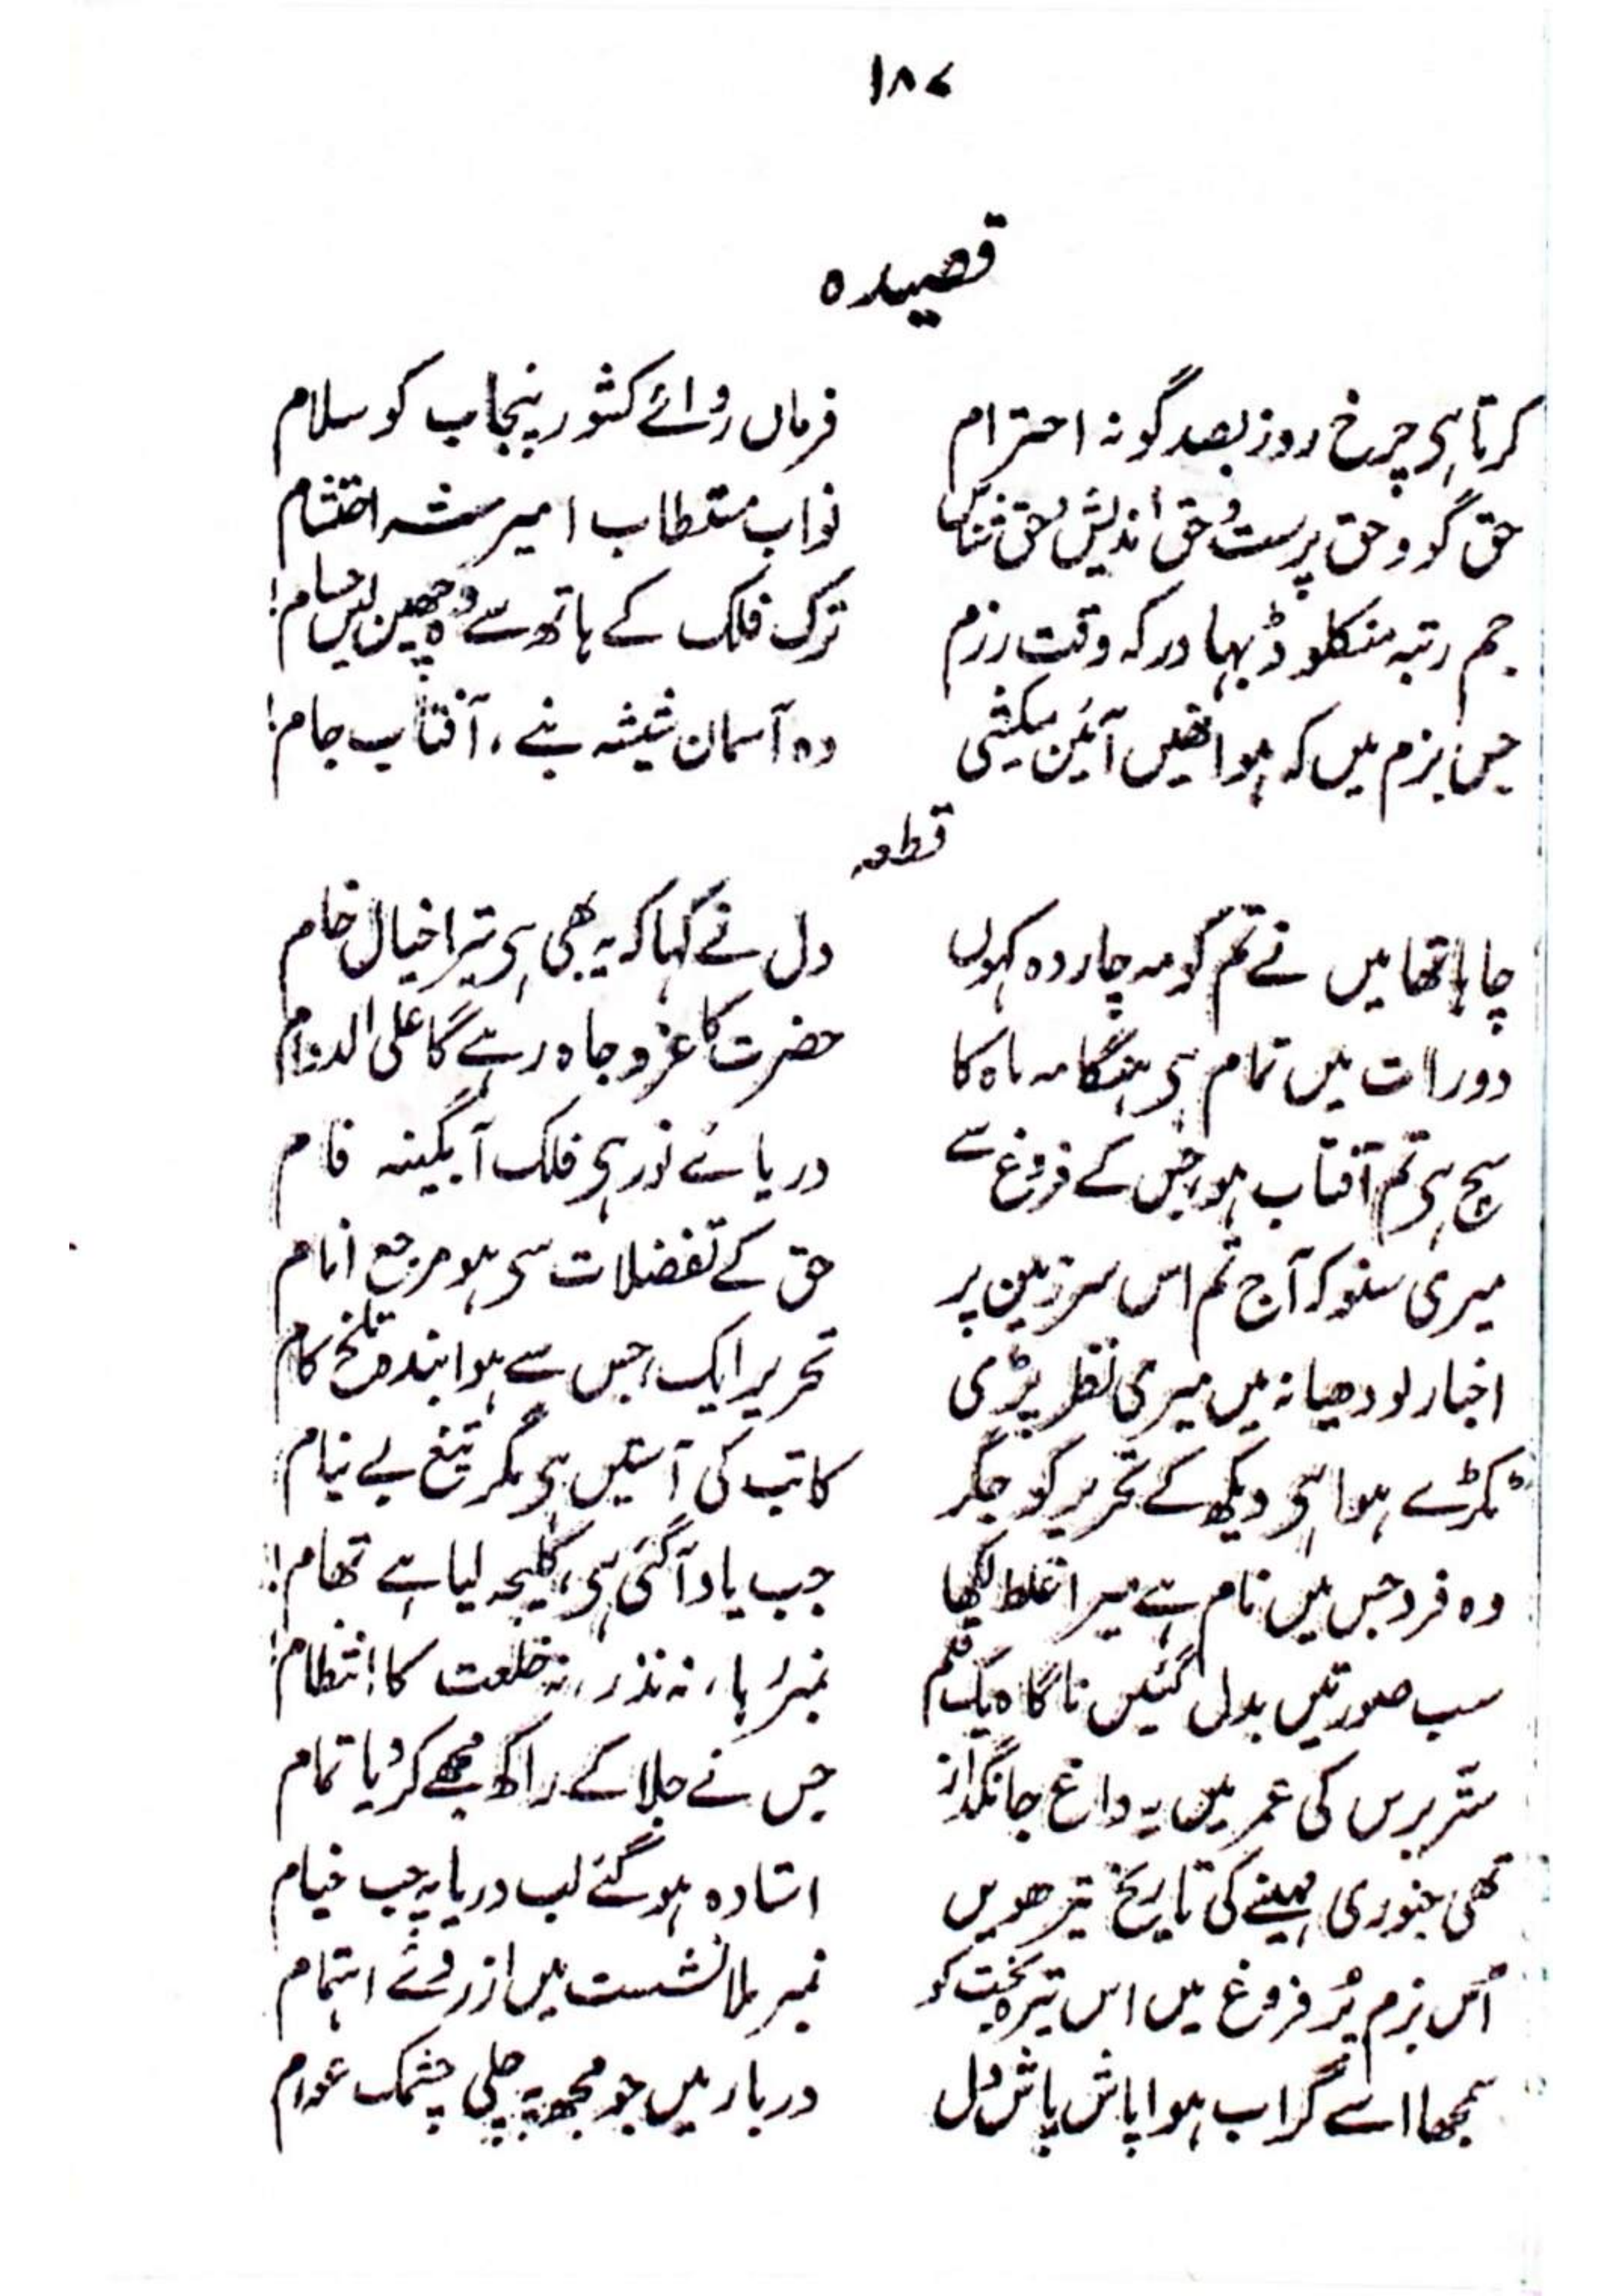 ۱۸۷
قصیدہ
کرتا ہی چرخ روز بصد گونہ احترام فرماں روائے کشور پنجاب کو سلام
حق گو و حق پرست و حق اندیش و حق شناس نواب مستطاب امیر شہ احتشام
جم رتبہ منکلوڈ بہادر کہ وقت رزم ترک فلک کے ہاتھ سے وہ چھین لیں حسام!
جس بزم میں کہ ہو انھیں آئین میکشی وہ آسمان شیشہ بنے، آفتاب جام!
قطعہ
چاہا تھا میں نے تم کو مہ چاردہ کہوں دل نے کہا کہ یہ بھی ہی تیرا خیال خام
دو رات میں تمام ہی ہنگامہ ماہ کا حضرت کا عز و جاہ رہے گا علی الدوام
سچ ہی تم آفتاب ہو، جس کے فروغ سے دریائے نور ہی فلک آبگینہ فام
میری سنو کہ آج تم اس سرزمین پر حق کے تفضلات سی ہو مرجع انام
اخبار لودھیانہ میں میری نظر پڑی تحریر ایک، جس سے ہوا بندہ تلخ کام
ٹکڑے ہوا ہی دیکھ کے تحریر کو جگر کاتب کی آستیں ہی مگر تیغ بے نیام
وہ فرد جس میں نام ہے میرا غلط لکھا جب یاد آگئی ہی، کلیجہ لیا ہے تھام!
سب صورتیں بدل گئیں ناگاہ یک قلم نمبر رہا، نہ نذر، نہ خلعت کا انتظام!
ستّر برس کی عمر میں یہ داغ جانگداز جس نے جلا کے راکھ مجھے کر دیا تمام
تھی جنوری مہینے کی تاریخ تیرھویں استادہ ہو گئے لب دریا پہ جب خیام
اُس بزم پُر فروغ میں اس تیرہ بخت کو نمبر ملا نشست میں از روئے اہتمام
سمجھا اسے گراب ہوا پاش پاش دل دربار میں جو مجھ پہ چلی چشمک عوام